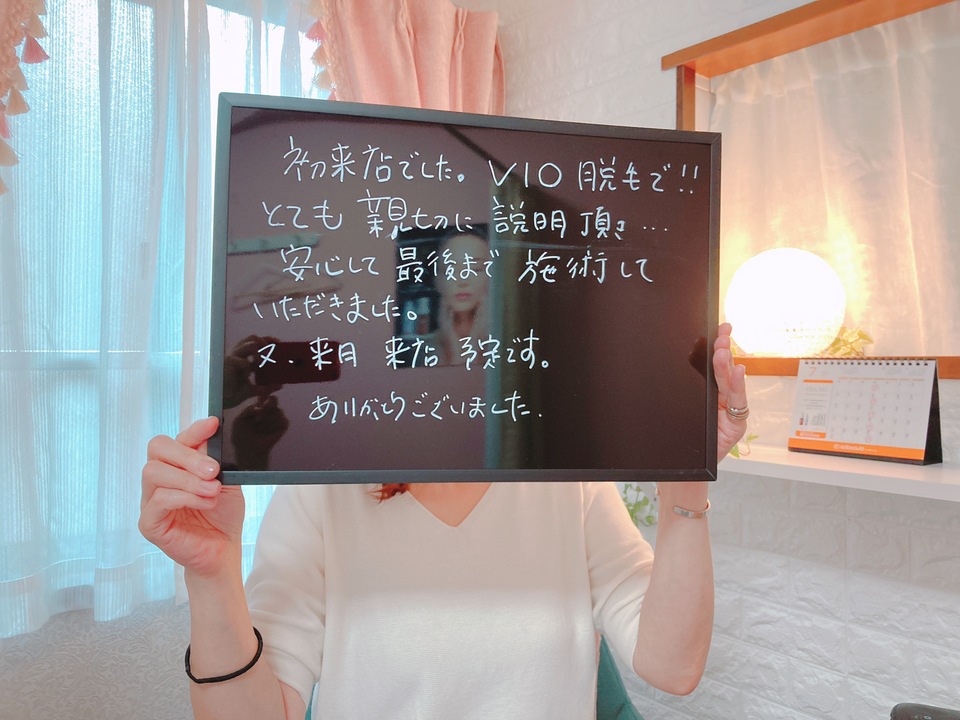 初来店でした。VIO脱毛で!!
とても親切に説明頂き…
安心して最後まで施術して
いただきました。
又、来月来店予定です。
ありがとうございました.